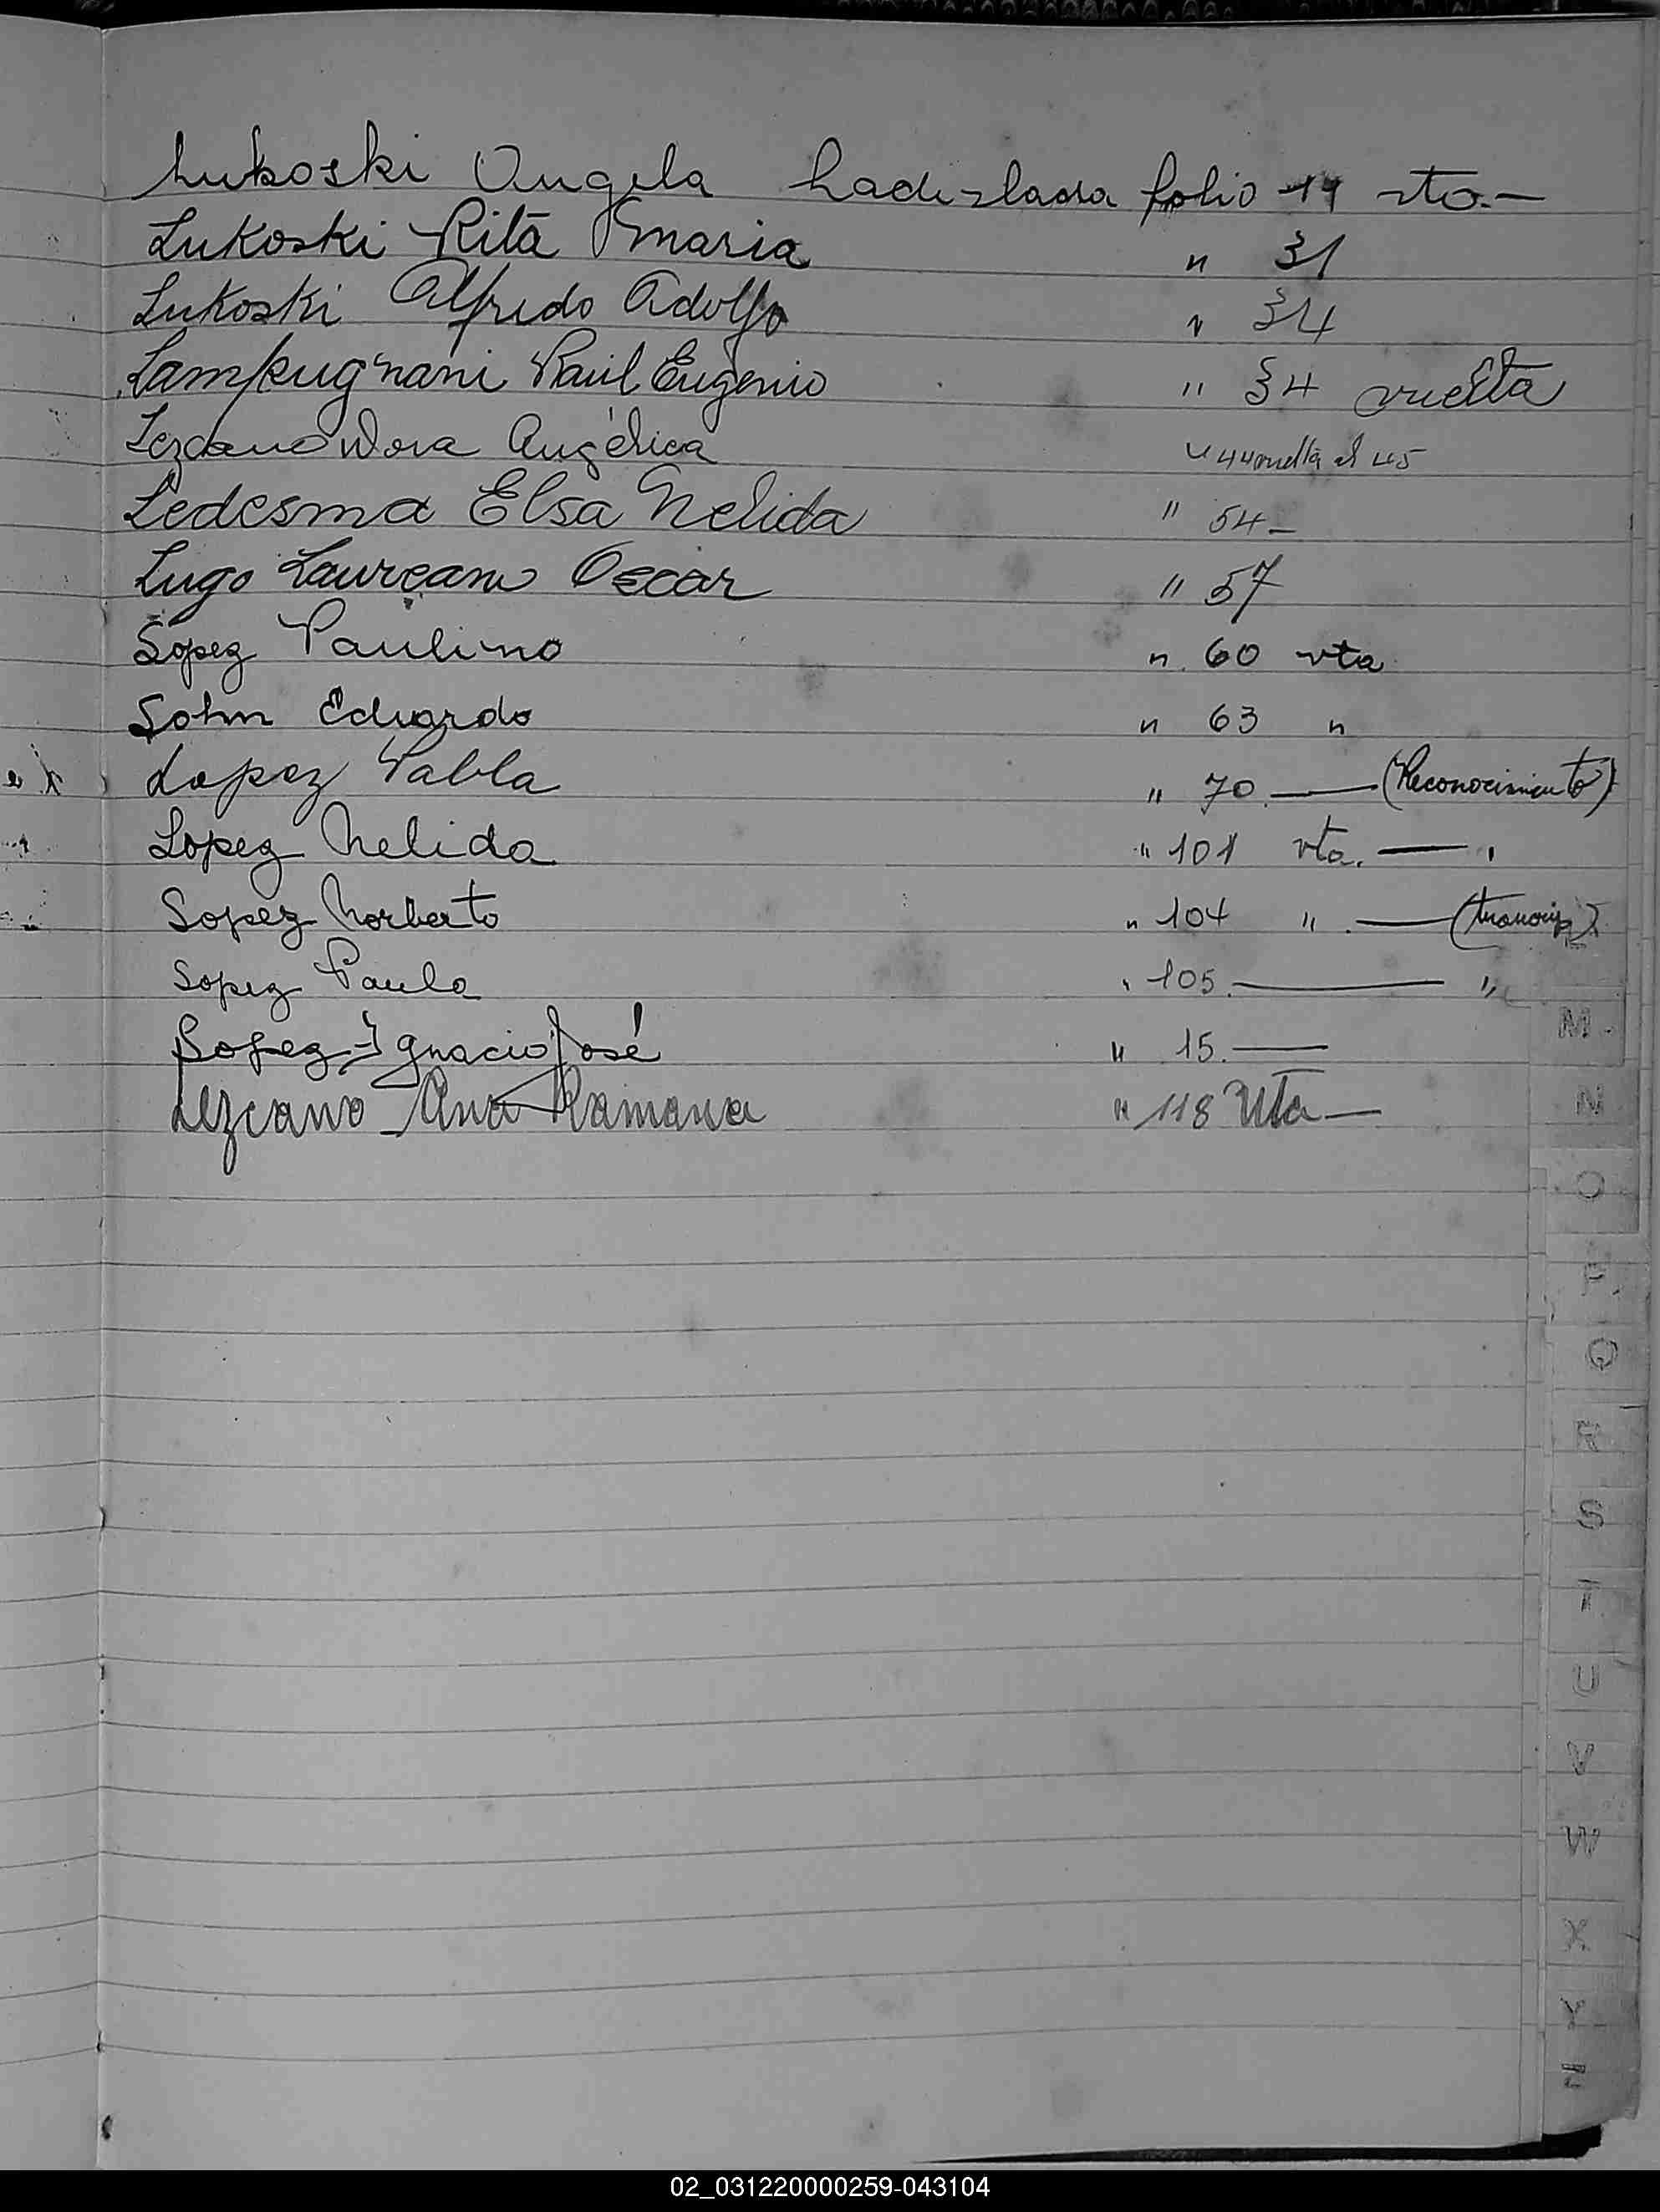 Lukoski Angela Ladislada folio 11 vto.-
Lukoski Rita Maria " 31
Lukoski Alfredo Adolfo " 34
Lampugnani Raúl Eugenio " 34 vuelta
Lezcano Dora Angélica " 44 vuelta al 45
Ledesma Elsa Nelida " 54-
Lugo Laureano Oscar " 57
Lopez Paulino " 60 vta
Lohn Eduardo " 63 "
Lopez Pabla " 70. — (Reconocimiento)
Lopez Nelida " 101 vta. — "
Lopez Norberto " 104 " . — (transcrip)
Lopez Paula " 105. — "
Lopez Ignacio José " 15. —
Lezcano Ana Ramona " 118 Vta —
M
N
O
P
Q
R
S
T
U
V
W
X
Y
Z
02_031220000259-043104